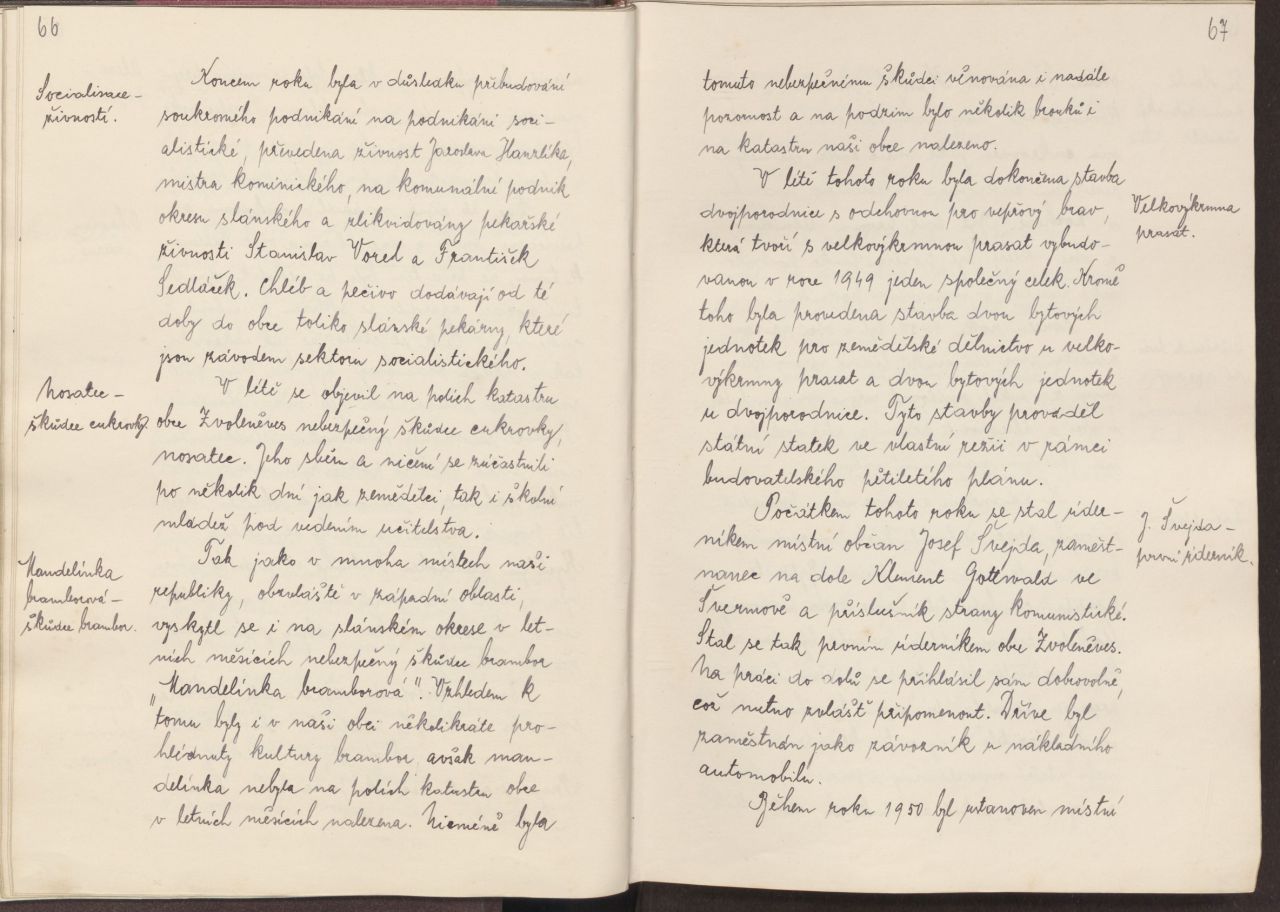 66
Socialisace
živností.
Koncem roku byla v důsledku přibudování
soukromého podnikání na podnikání soci-
alistické, převedena živnost Jaroslava Hanzlíka,
mistra kominického, na komunální podnik
okresu slánského a zlikvidovány pekařské
živnosti Stanislav Vored a František
Sedláček. Chléb a pečivo dodávají od té
doby do obce toliko slánské pekárny, které
jsou závodem sektoru socialistického.
Nosatec -
škůdce cukrovky.
V létě se objevil na polích katastru
obce Zvoleněves nebezpečný škůdce cukrovky,
nosatec. Jeho sběru a ničení se zúčastnili
po několik dní jak zemědělci, tak i školní
mládež pod vedením učitelstva.
Mandelinka
bramborová -
škůdce brambor.
Tak jako v mnoha místech naší
republiky, obzvláště v západní oblasti,
vyskytl se i na slánském okrese v let-
ních měsících nebezpečný škůdce brambor
„Mandelinka bramborová". Vzhledem k
tomu byly i v naší obci několikráte pro-
hlédnuty kultury brambor, avšak man-
delinka nebyla na polích katastru obce
v letních měsících nalezena. Nicméně byla
67
tomuto nebezpečnému škůdci věnována i nadále
pozornost a na podzim bylo několik brouků i
na katastru naší obce nalezeno.
V létě tohoto roku byla dokončena stavba
dvojporodnice s odchovnou pro vepřový brav,
která tvoří s velkovýkrmnou prasat vybudo-
vanou v roce 1949 jeden společný celek. Kromě
toho byla provedena stavba dvou bytových
jednotek pro zemědělské dělnictvo u velko-
výkrmny prasat a dvou bytových jednotek
u dvojporodnice. Tyto stavby prováděl
státní statek ve vlastní režii v rámci
budovatelského pětiletého plánu.
Velkovýkrmna
prasat.
Počátkem tohoto roku se stal úder-
níkem místní občan Josef Švejda, zaměst-
nanec na dole Klement Gottwald ve
Švermově a příslušník strany komunistické.
Stal se tak prvním úderníkem obce Zvoleněves.
Na práci do dolů se přihlásil sám dobrovolně,
což nutno zvlášť připomenout. Dříve byl
zaměstnán jako závozník u nákladního
automobilu.
J. Švejda -
první úderník.
Během roku 1950 byl ustanoven místní